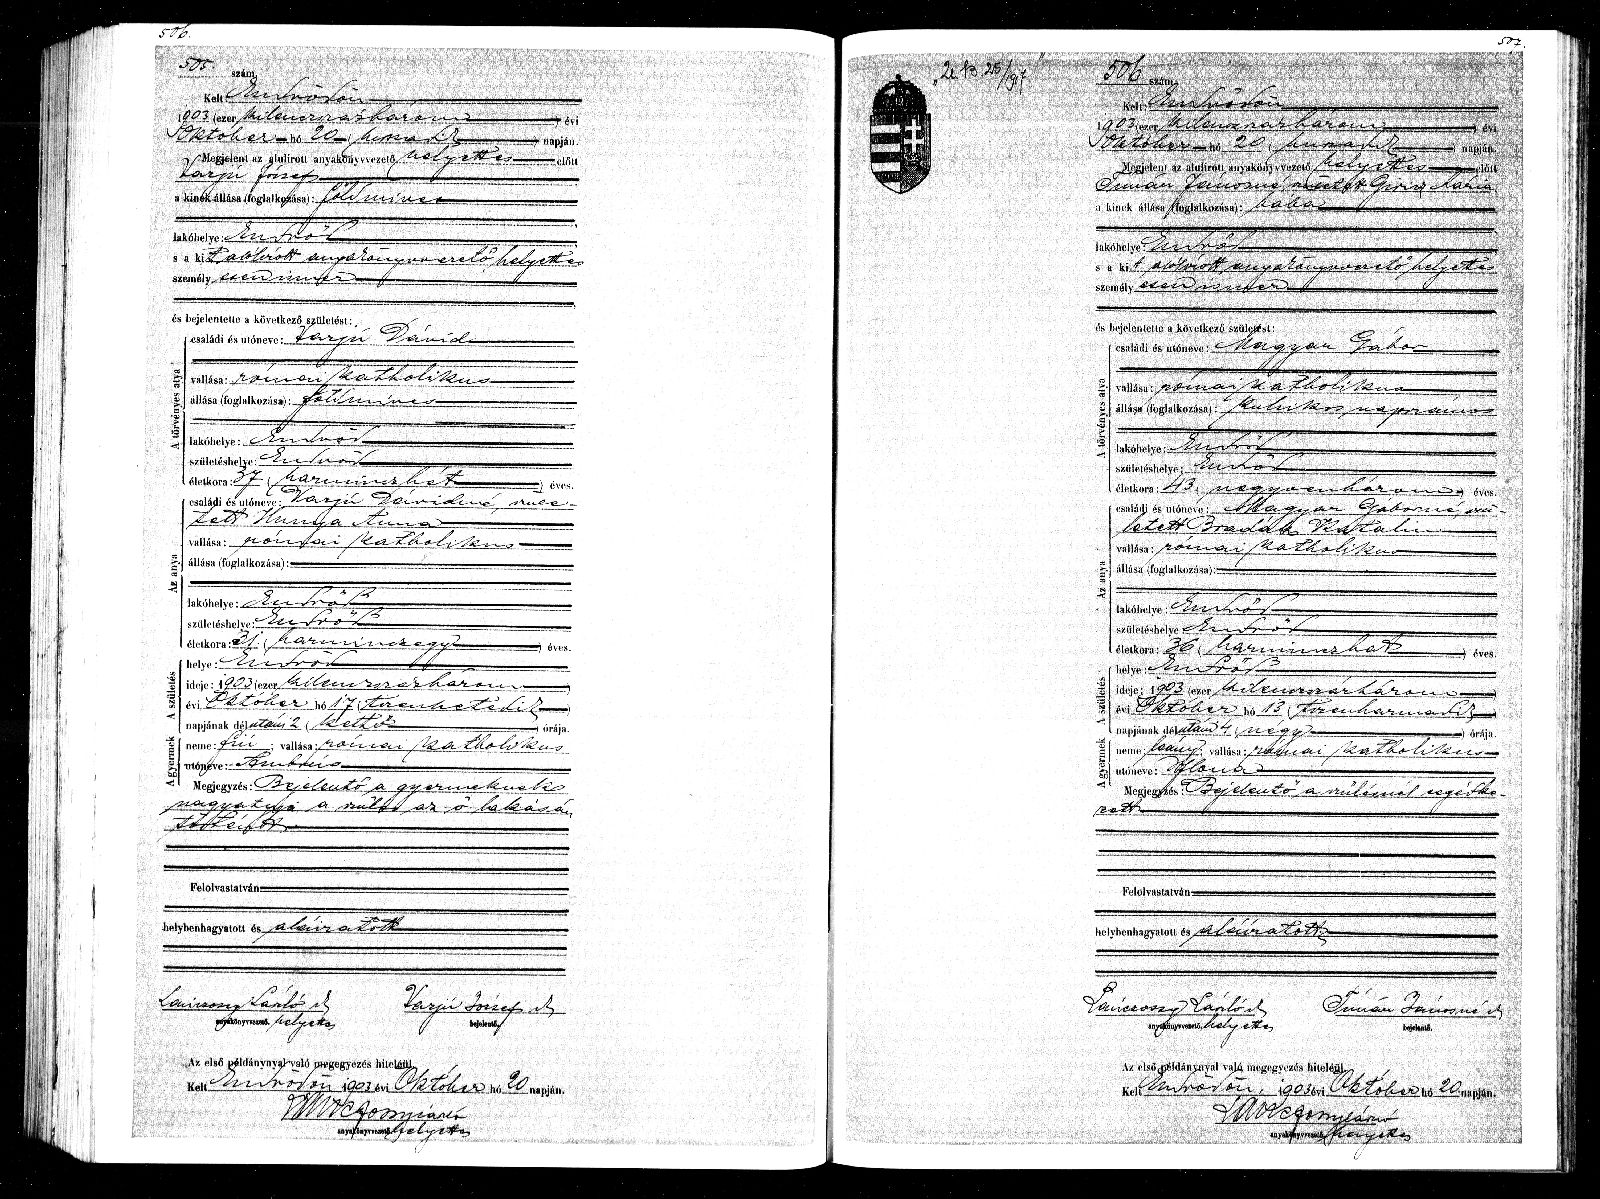 506.
505. szám.
Kelt Endrődön
1903 (ezer kilenczszázhárom) évi
Október hó 20 (huszadik) napján.
Megjelent az alulírott anyakönyvvezető helyettes előtt
Varjú József
a kinek állása (foglalkozása): földmíves
lakóhelye: Endrőd
s a kit alólírott anyakönyvvezető helyettes
személyesen ismer
és bejelentette a következő születést:
A törvényes atya
családi és utóneve: Varjú Dávid
vallása: római katholikus
állása (foglalkozása): földmíves
lakóhelye: Endrőd
születéshelye: Endrőd
életkora: 37 (harminczhét) éves.
Az anya
családi és utóneve: Varjú Dávidné, szüle-
tett Hunya Anna
vallása: római katholikus
állása (foglalkozása):
lakóhelye: Endrőd
születéshelye: Endrőd
életkora: 31 (harminczegy) éves.
A születés
helye: Endrőd
ideje: 1903 (ezer kilenczszázhárom)
évi Október hó 17 (tizenhetedik)
napjának délután 2 (kettő) órája.
A gyermek
neme: fiú; vallása: római katholikus
utóneve: Ambrus
Megjegyzés: Bejelentő a gyermeknek
nagyatyja a szülés az ő lakásán
történt
Felolvastatván
helybenhagyatott és aláiratott
Lanczosy László
anyakönyvvezető. helyettes
Varjú József
bejelentő.
Az első példánynyal való megegyezés hiteléül
Kelt Endrődön 1903 évi Október hó 20 napján.
anyakönyvvezető. helyettes
507.
506 szám.
Kelt: Endrődön
1903 (ezer kilenczszázhárom) évi
Október hó 20 (huszadik) napján.
Megjelent az alulírott anyakönyvvezető helyettes előtt
Tímár Jánosné, született Mária
a kinek állása (foglalkozása): bába
lakóhelye: Endrőd
s a kit alólírott anyakönyvvezető helyettes
személyesen ismer
és bejelentette a következő születést:
A törvényes atya
családi és utóneve: Magyar Gábor
vallása: római katholikus
állása (foglalkozása): kubikos napszámos
lakóhelye: Endrőd
születéshelye: Endrőd
életkora: 43 (negyvenhárom) éves.
Az anya
családi és utóneve: Magyar Gáborné, szü-
letett Katalin
vallása: római katholikus
állása (foglalkozása):
lakóhelye: Endrőd
születéshelye Endrőd
életkora: 36 (harminczhat) éves.
A születés
helye: Endrőd
ideje: 1903 (ezer kilenczszázhárom)
évi Október hó 13 (tizenharmadik)
napjának délután 4 (négy) órája.
A gyermek
neme: leány; vallása: római katholikus
utóneve: Ilona
Megjegyzés: Bejelentő a szülésnél segédke-
zett
Felolvastatván
helybenhagyatott és aláiratott
Lanczosy László
anyakönyvvezető, helyettes
Tímár Jánosné
bejelentő.
Az első példánynyal való megegyezés hiteléül
Kelt Endrődön, 1903 évi Október hó 20 napján.
anyakönyvvezető. helyettes